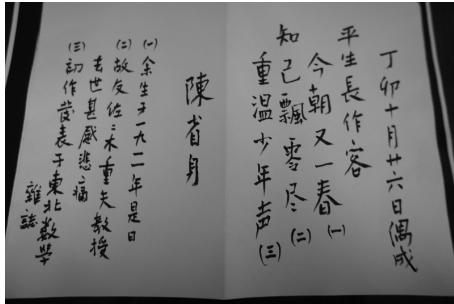 丁卯十月廿六日偶成
平生長作客
今朝又一春 (一)
知己飄零尽 (二)
重温少年声 (三)
陳省身
(一) 余生于一九一一年是日
(二) 故友佐々木重夫教授
去世甚感悲痛
(三) 初作發表于東北数学
雜誌